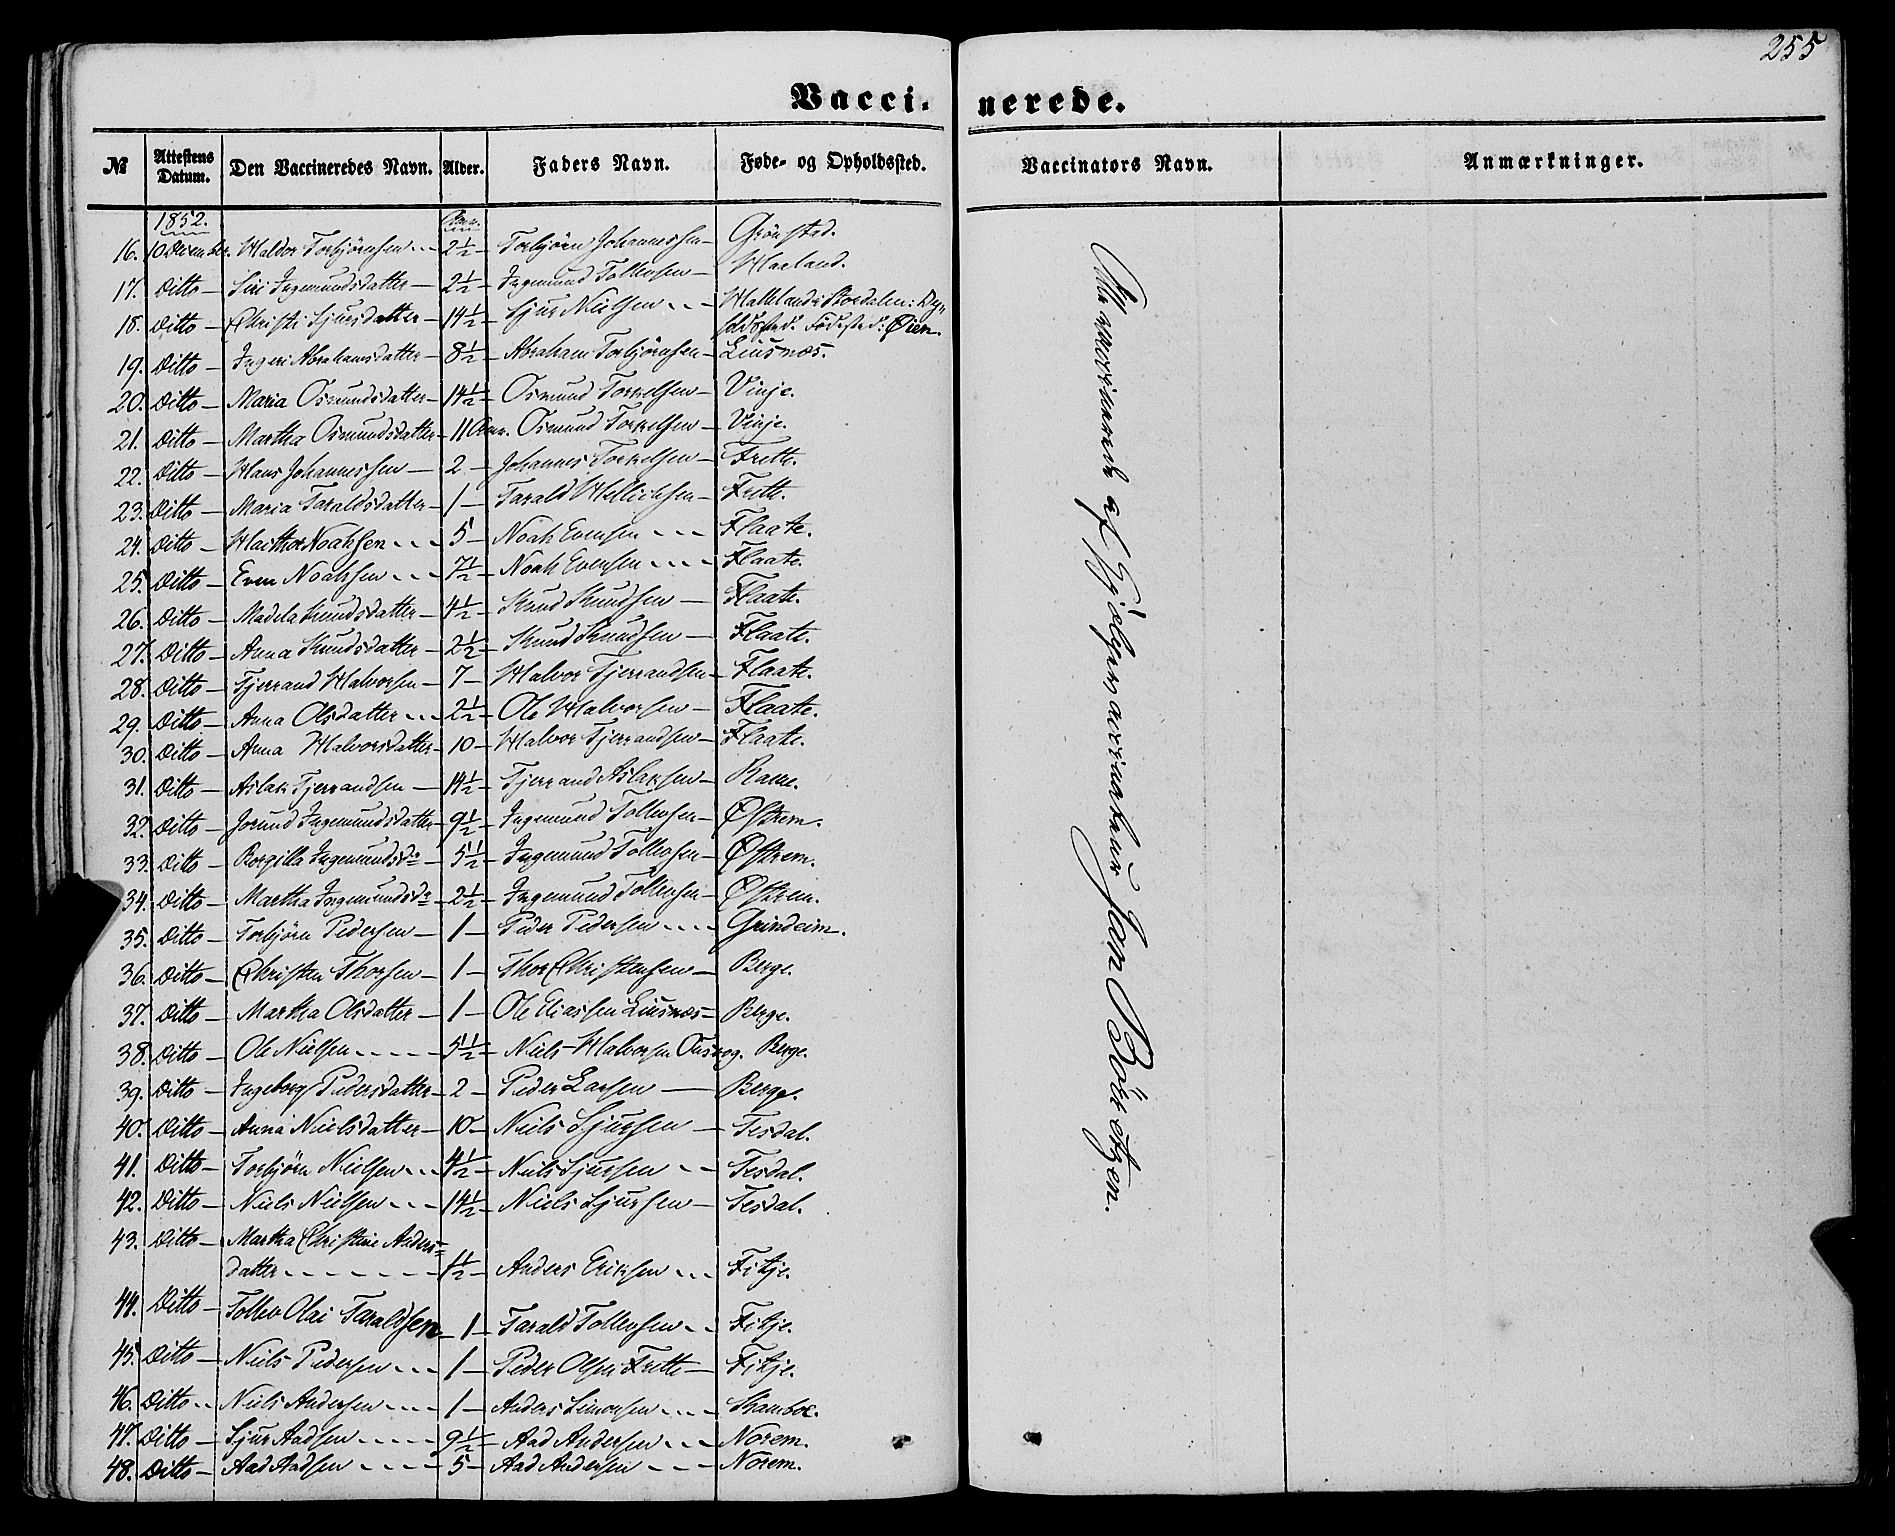 255
Vacci- nerede.
№ Attestens Datum. Den Vaccineredes Navn. Alder. Faders Navn. Føde- og Opholdssted. Vaccinators Navn. Anmærkninger.
1852. Aar.
16. 10 December. Haldor Torbjörnsen - - 2½ - Torbjörn Johannessen - Grönstad.
17. Ditto - Siri Ingemundsdatter - 2½ - Ingemund Tollevsen - Haaland.
18. Ditto - Christi Sjursdatter - 14½ - Sjur Nielsen - - Halleland i Skordalen:
Födested: Øien.
19. Ditto - Ingeri Abrahamsdatter - 8½ - Abraham Torbjörnsen - Liusnæs.
20. Ditto - Maria Osmundsdatter - 14½ - Osmund Torkelsen - Vinje.
21. Ditto - Martha Osmundsdatter - 11 Aar. Osmund Torkelsen - Vinje.
22. Ditto - Hans Johannessen - 2 - Johannes Torkelsen - Frette.
23. Ditto - Maria Taraldsdatter - 1 - Tarald Mellichsen - Frette.
24. Ditto - Noahsen - - - 5 - Noah Evensen - - - Flaate.
25. Ditto - Even Noahsen - - - 7½ - Noah Evensen - - - - Flaate.
26. Ditto - Madela Knudsdatter - 4½ - Knud Knudsen - Flaate.
27. Ditto - Anna Knudsdatter - 2½ - Knud Knudsen - Flaate.
28. Ditto - Tjerrand Halvorsen - 7 - Halvor Tjerrandsen - Flaate.
29. Ditto - Anna Olsdatter - - 2½ - Ole Halvorsen - Flaate.
30. Ditto - Anna Halvorsdatter - 10 - Halvor Tjerrandsen - Flaate.
31. Ditto - Aslak Tjerrandsen - 14½ - Tjerrand Aslaksen - Rame.
32. Ditto - Jorund Ingemundsdatter - 9½ - Ingemund Tollevsen - Østrem.
33. Ditto - Borgilla Ingemundsdr - 5½ - Ingemund Tollevsen - Østrem.
34. Ditto - Martha Ingemundsdr - 2½ - Ingemund Tollevsen - Østrem.
35. Ditto - Torbjörn Pedersen - 1 - Peder Pedersen - - - Grindeim.
36. Ditto - Christen Thorsen - 1 - Thor Christensen - Berge.
37. Ditto - Martha Olsdatter - 1 - Ole Eliassen Liusnæs - Berge.
38. Ditto - Ole Nielsen - - - - - 5½ - Niels Halvorsen Berge.
39. Ditto - Ingeborg Pedersdatter - 2 - Peder Larsen - Berge.
40. Ditto - Anna Nielsdatter - 10 - Niels Sjursen - Tesdal.
41. Ditto - Torbjörn Nielsen - - 4½ - Niels Sjursen - - Tesdal.
42. Ditto - Niels Nielsen - - - 14½ - Niels Sjursen - Tesdal.
43. Ditto - Martha Christine Anders=
datter - - - - - - - 1½ - Anders Eriksen - - Fitje.
44. Ditto - Tollev Olai Taraldsen - 1 - Tarald Tollevsen - - Fitje.
45. Ditto - Niels Pedersen - - - 1 - Peder Olsen Frette - Fitje.
46. Ditto - - Niels Andersen - - - - 1 - Anders Simonsen - - - Skamboe.
47. Ditto - Sjur Aadsen - - - - - 9½ - Aad Andersen - - - Norem.
48. Ditto - Aad Aadsen - - - - - 5 - Aad Andersen - - - Norem.
Alle vaccinerede af Hjælpevaccinateur Jan